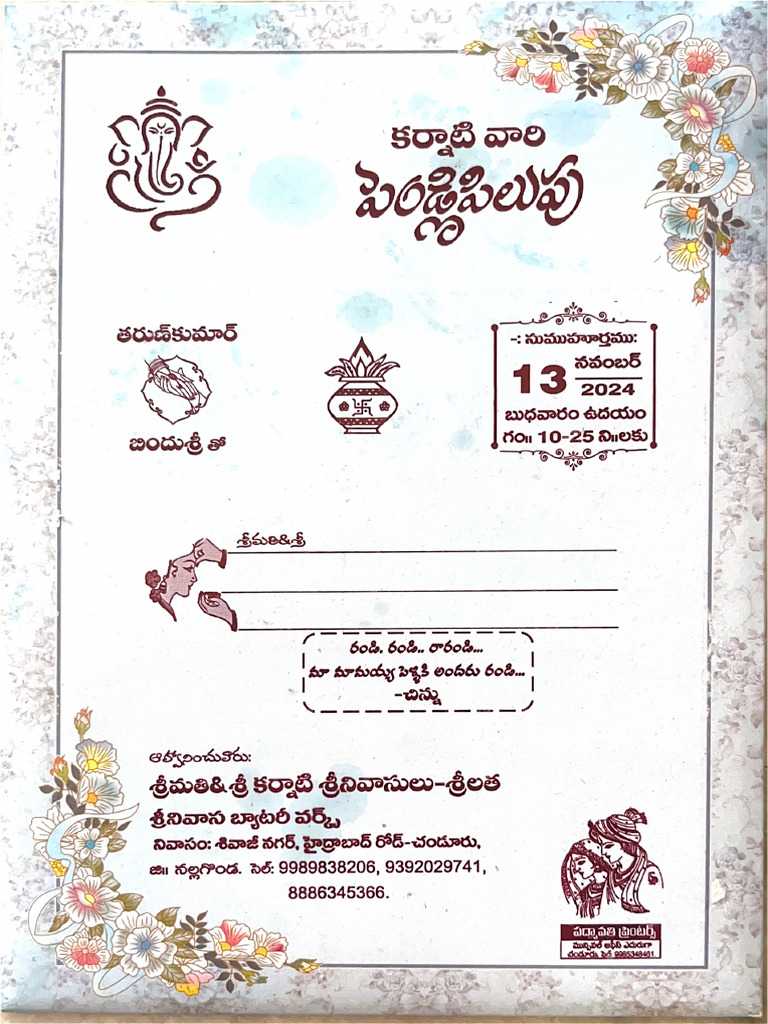 కర్నాటి వారి
పెండ్లిపిలుపు
తరుణ్‌కుమార్
బిందుశ్రీ తో
-: సుముహూర్తము:
13 నవంబర్
2024
బుధవారం ఉదయం
గం॥ 10-25 ని॥లకు
శ్రీమతి&శ్రీ
రండి. రండి.. రారండి...
మా మామయ్య పెళ్ళికి అందరు రండి...
-చిన్ను
ఆహ్వానించువారు:
శ్రీమతి&శ్రీ కర్నాటి శ్రీనివాసులు-శ్రీలత
శ్రీనివాస బ్యాటరీ వర్క్స్
నివాసం: శివాజీ నగర్, హైద్రాబాద్ రోడ్-చండూరు,
జి॥ నల్లగొండ. సెల్: 9989838206, 9392029741,
8886345366.
పద్మావతి ప్రింటర్స్
మున్సిపల్ ఆఫీస్ ఎదురుగా
చండూరు.